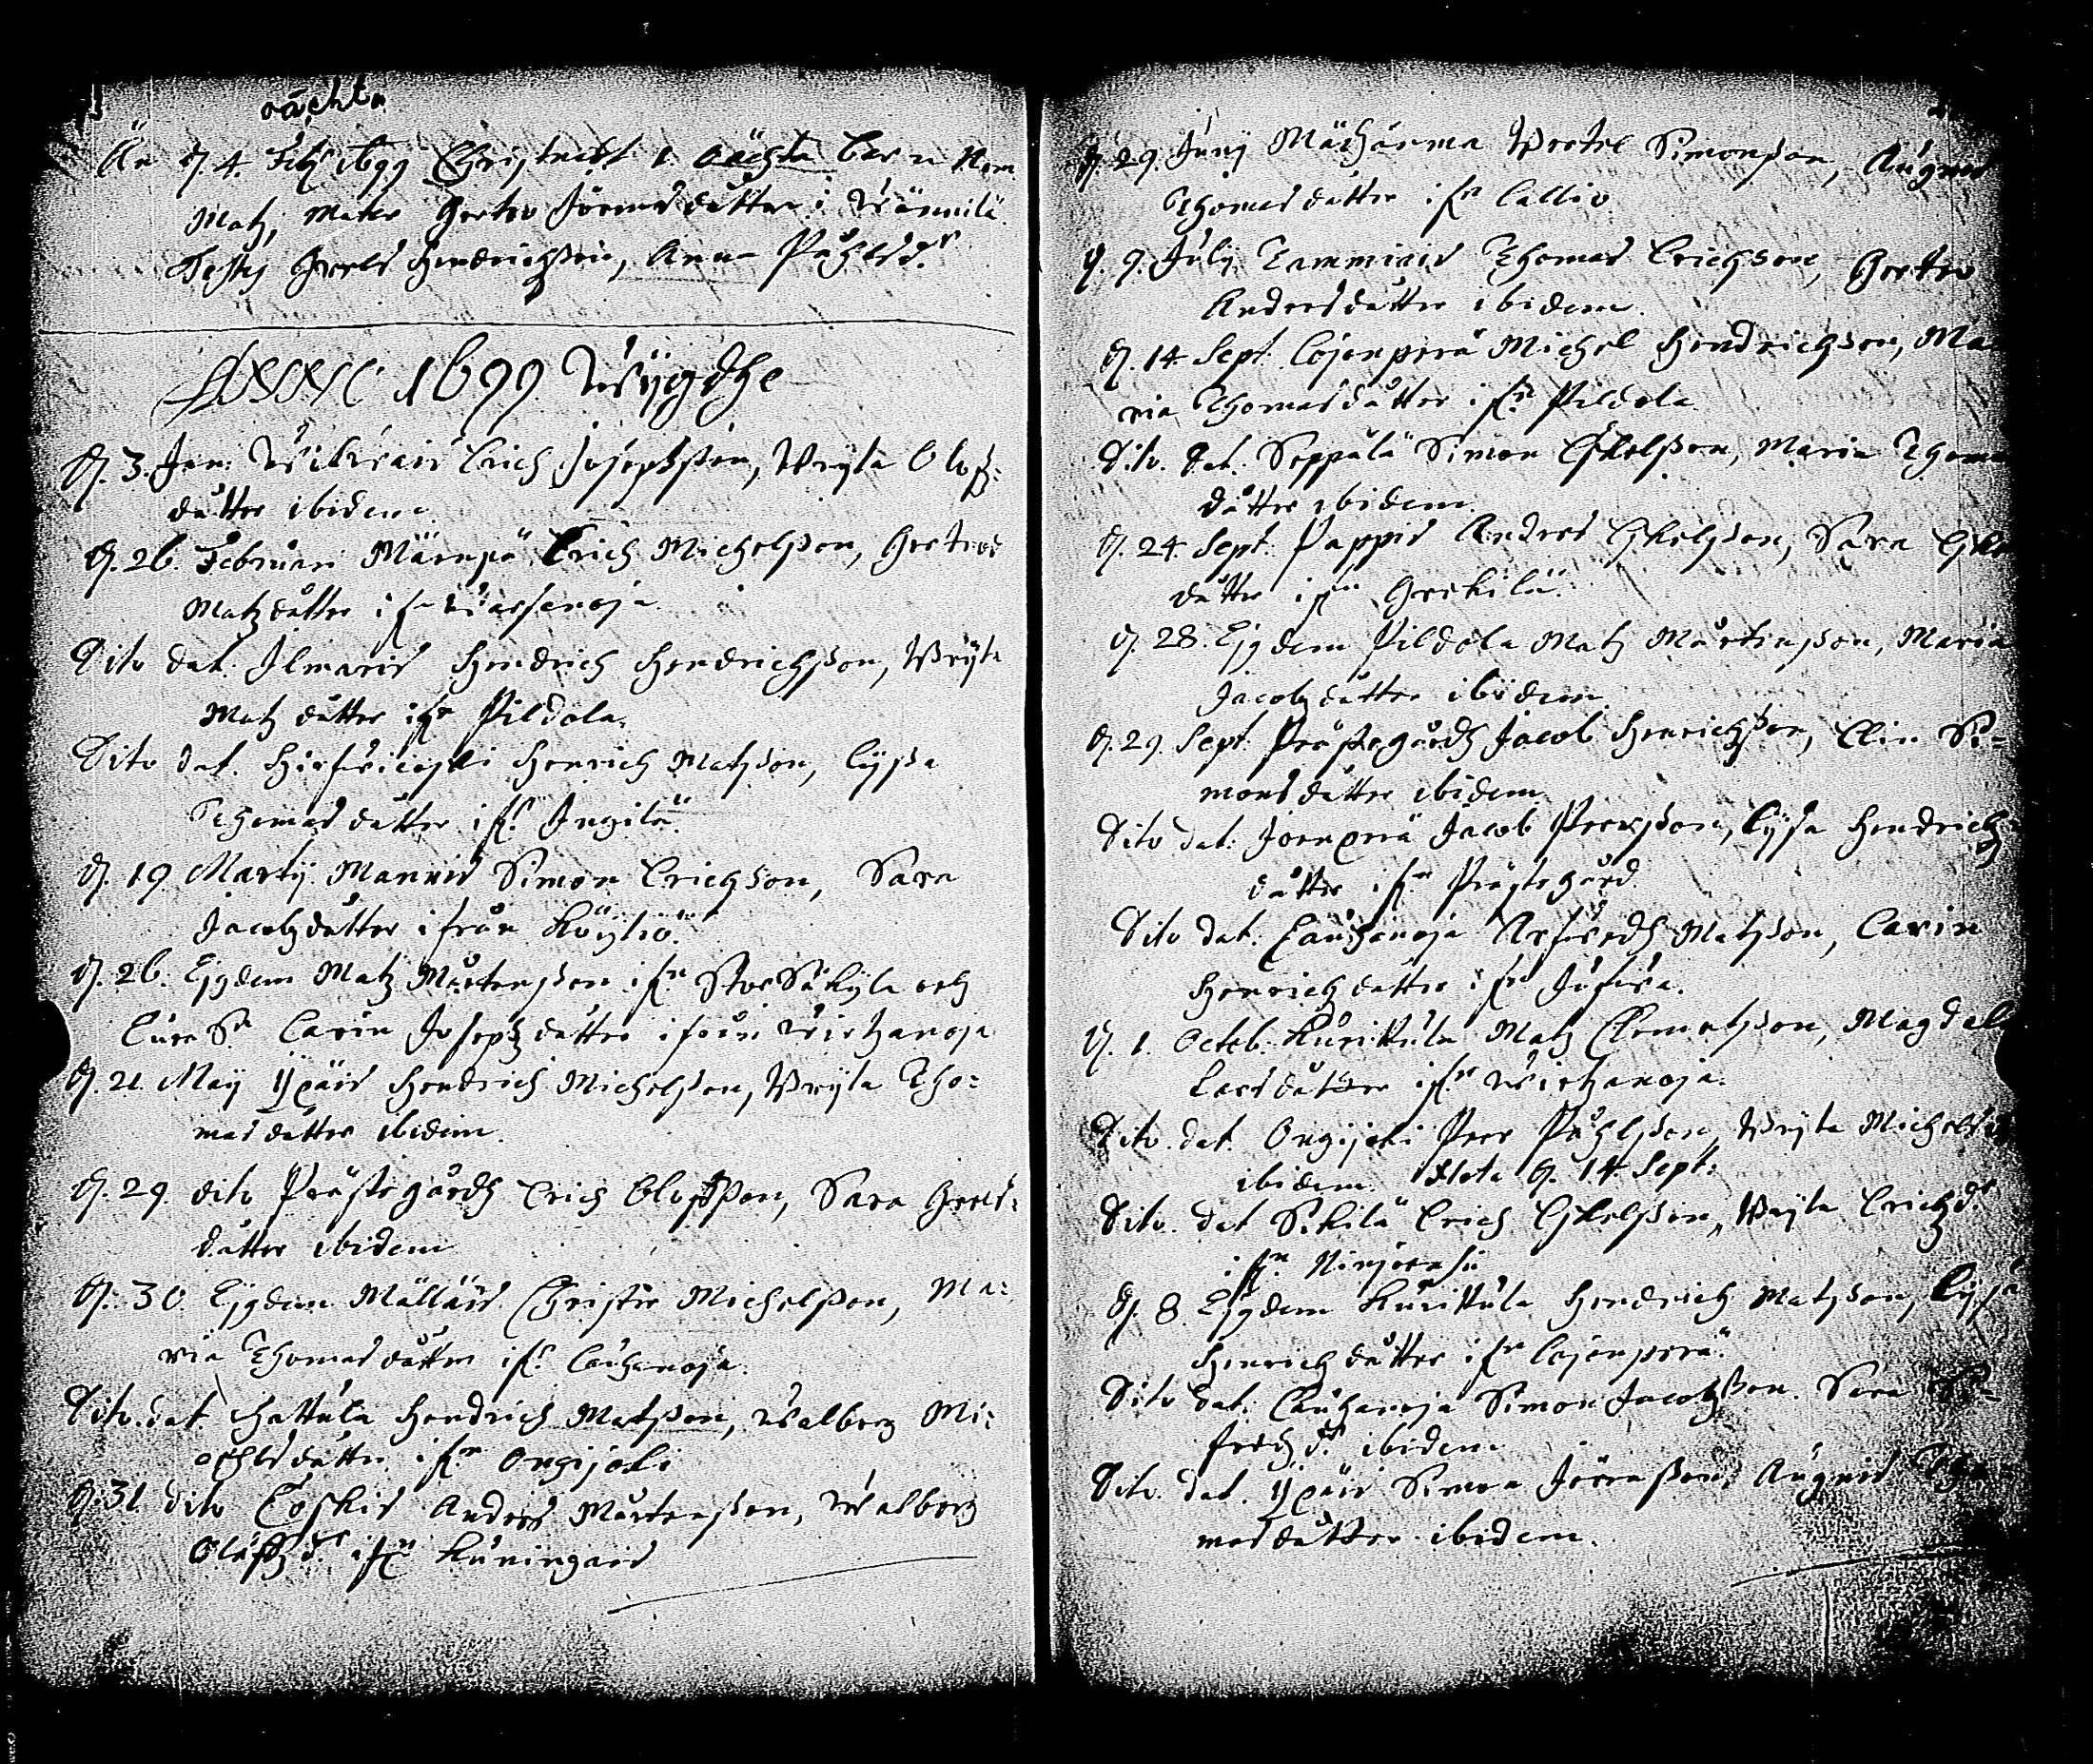 oächta
Än d. 4. Feb. 1699 Christnat 1 oächta barn Nom.
Matz, Mater Gretro Jörensdåtter i Männilä
Testes Greels Hendrichsson, Anna Påhlsd.r
Anno 1699 Wijgdhe
d. 3. Jan. Erich Josephsson, Wryla Olofz-
dåtter ibidem
d. 26. Februari Märnpä Erich Michelsson, Gretro
Matzdåtter ifn
Dito dat. Ilmaris Hendrich Hendrichsson, Wryla
Matzdåtter ifn Pildola.
Dito dat. Hirfwicoski Henrich Matzson, Lijsa
Thomasdåtter ifn Jngilä.
d. 19 Martij Mannis Simon Erichson, Sara
Jacobzdåtter ifrån Köyliö.
d. 26. Ejgdem Matz Mårtensson ifn Stor Säkyla och
Carin Josephzdåtter ifrån Wirtzanoja
d. 21. Maij Ypäis Hendrich Michelsson, Wryla Tho-
masdåtter ibidem.
d. 29. dito Prästegårdh Erich Olofsson, Sara Greels-
dåtter ibidem
d. 30. Ejgdem Mälläis Christer Michelsson, Ma-
ria Thomasdåtter ifn Cauhanoja.
Dito dat. Hattula Hendrich Matzson, Walborg Mi-
chelsdåtter ifn Ongijoki
d. 31. dito Coskis Anders Mårtensson, Walborg
Olåfzd.r ifn Kuningais
d. 29. Junij Mähänma Wretel Simonsson, Augnes
Thomasdåtter ifn Callio
d. 9. Julij Tammiais Thomas Erichson, Gretro
Andersdåtter ibidem.
d. 14 Sept. Cojonperä Michel Hendrichson, Ma-
ria Thomasdåtter ifn Pildola
Dito. Dat. Seppälä Simon Eskelsson, Maria Thomas
dåtter ibidem.
d. 24. Sept. Pappis Andres Eskelsson, Sara
dåtter ifn Grekilä.
d. 28. Ejgdem Pildola Matz Mårtensson, Maria
Jacobzdåtter ibidem.
d. 29. Sept. Prästegårdh Jacob Henrichson, Elin Si-
monsdåtter ibidem
Dito dat. Joenperä Jacob Peersson, Lijsa Hendrichz
dåtter ifn Prästegård.
Dito dat. Cauhanoja Arfwedh Matzson, Carin
Henrichzdåtter ifn Jufwa.
d. 1. Octob. Kurikkula Matz Clemetzson, Magdalena
Larsdåtter ifn Wirtzanoja.
Dito. dat. Ongijoki Peer Påhlsson, Wryla Michelsd.
ibidem. Nota d. 14 Sept.
Dito. dat Erich Eskelsson, Wryla Erichzd.r
ifn Ninjoensu
d. 8. Ejgdem Kurikkula Hendrich Matzson, Lijsa
Henrichzdåtter ifn Cojonperä.
Dito dat. Cauhanoja Simon Jacobzson. Sara Si-
fredzd.r ibidem
Dito. dat. Ypäis Simon Jörensson, Augnis Tho-
masdåtter ibidem.